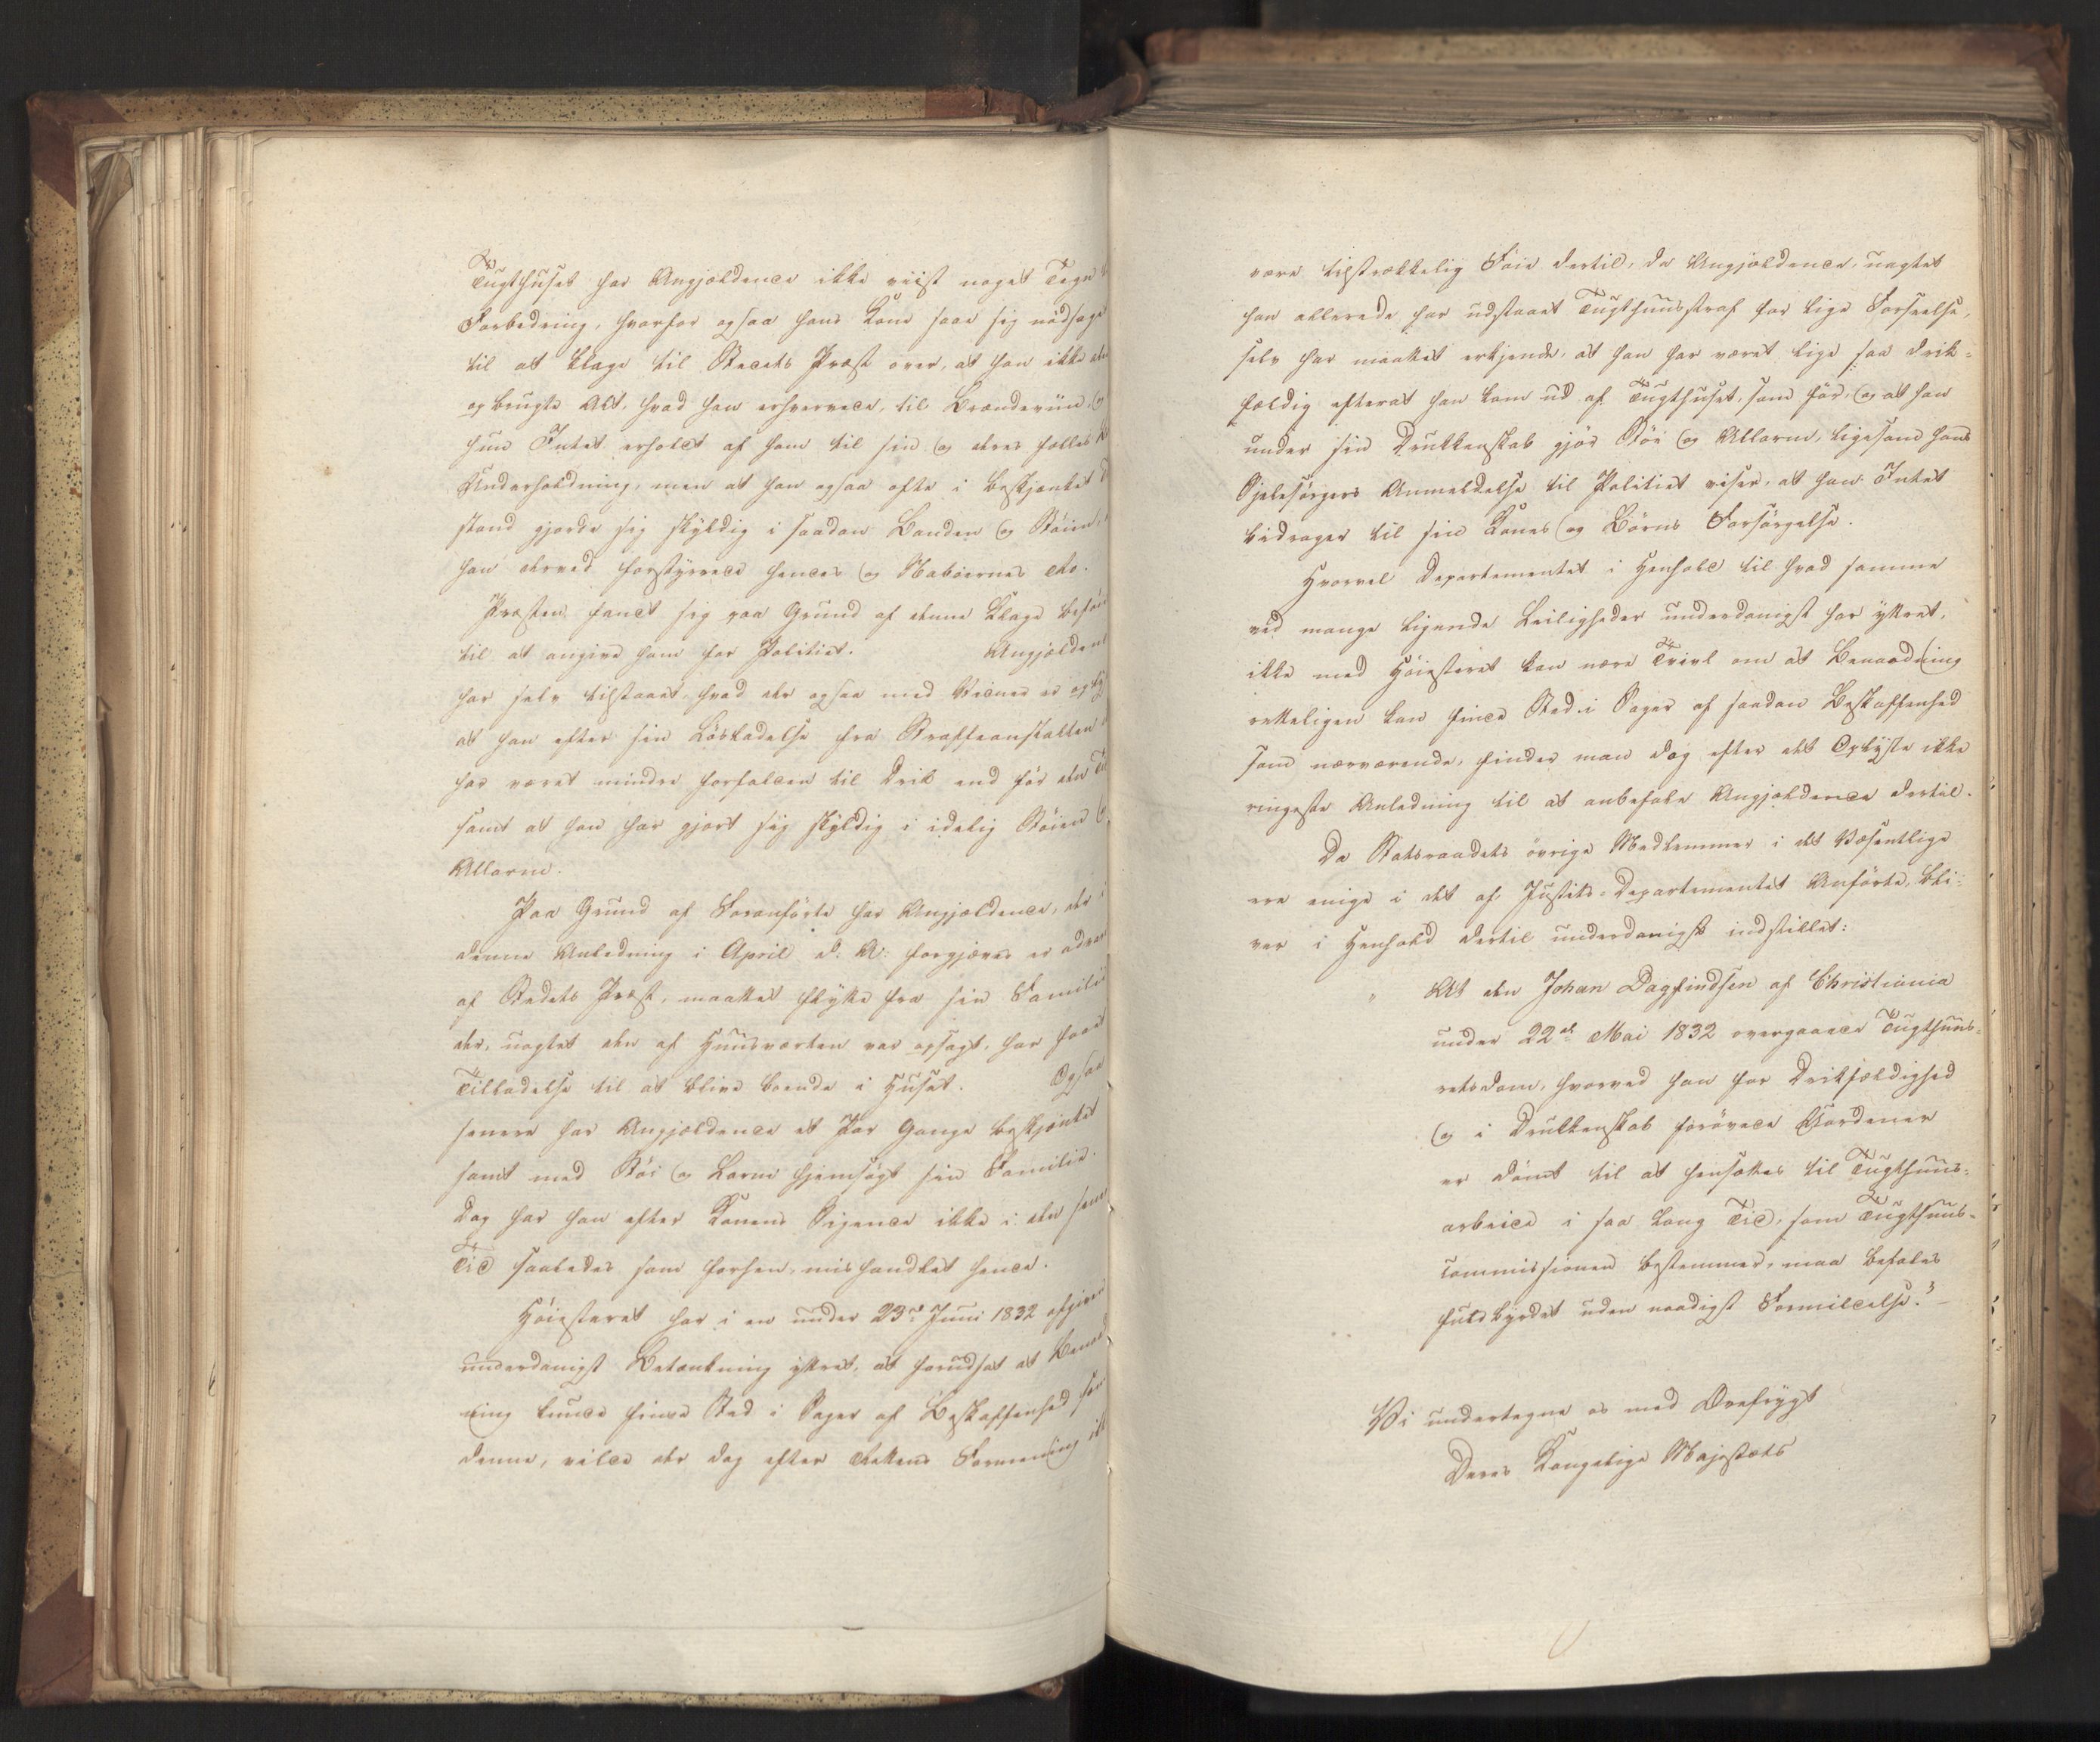 Tugthuset har Angjældende ikke viist noget Tegn
Forbedring, hvorfor ogsaa hans Kone saae sig nødsaget
til at klage til Stedets Præst over, at han ikke
og brugte Alt, hvad han erhvervede, til Brændeviin, og
hun Intet erholdt af ham til sin og deres fælles
Underholdning, men at han ogsaa ofte i beskjænket
stand gjorde sig skyldig i saadan Banden og Støien,
han derved forstyrrede hendes og Naboernes Ro.
Præsten fandt sig paa Grund af denne Klage beføiet
til at angive ham for Politiet. Angjældende
har selv tilstaaet, hvad der ogsaa med Vidner er oply
at han efter sin Løsladelse fra Straffeanstalten
har været mindre forfalden til Drik end før den Tid
samt at han har gjort sig skyldig i idelig Støien og
Allarm.
Paa Grund af Foranførte har Angjældende, der i
denne Anledning i April d. A. forgjæves er advaret
af Stedets Præst, maattet flytte fra sin Familie
der, uagtet den af Huusværten var opsagt, har faaet
Tilladelse til at blive boende i Huset. Ogsaa
senere har Angjældende et Par Gange beskjænket
samt med Støi og Larm hjemsøgt sin Familie.
Dog har han efter Konens Sigende ikke i den senere
Tid saaledes som forhen, mishandlet hende.
Høiesteret har i en under 23de Juni 1832 afgiven
underdanigst Betænkning yttret, at forudsat at Benaad
ning kunde finde Sted i Sager af Beskaffenhed som
denne, vilde der dog efter Rettens Formening ikke
være tilstrækkelig Føie dertil, da Angjældende, uagtet
han allerede har udstaaet Tugthuusstraf for lige Forseelse,
selv har maattet erkjende, at han har været lige saa drik-
fældig efterat han kom ud af Tugthuset, som før, og at han
under sin Drukkenskab gjør Støi og Allarm, ligesom hans
Sjelesørgers Anmeldelse til Politiet viser, at han Intet
bidrager til sin Kones og Børns Forsørgelse.
Hvorvel Departementet i Henhold til hvad samme
ved mange lignende Leiligheder underdanigst har yttret,
ikke med Høiesteret kan nære Tvivl om at Benaadning
retteligen kan finde Sted i Sager af saadan Beskaffenhed
som nærværende, finder man dog efter det Oplyste ikke
ringeste Anledning til at anbefale Angjældende dertil.
Da Statsraadets øvrige Medlemmer i det Væsentlige
ere enige i det af Justits-Departementet Anførte, bli-
ver i Henhold dertil underdanigst indstillet:
" At den Johan Dagfindsen af Christiania
under 22de Mai 1832 overgaaede Tugthuus-
retsdom, hvorved han for Drikfældighed
og i Drukkenskab forøvede Uordener
er dømt til at hensættes til Tugthuus-
arbeide i saa lang Tid, som Tugthuus-
commissionen bestemmer, maa befales
fuldbyrdet uden naadigst Formildelse."
Vi undertegne os med Ærefrygt
Deres Kongelige Majestæts